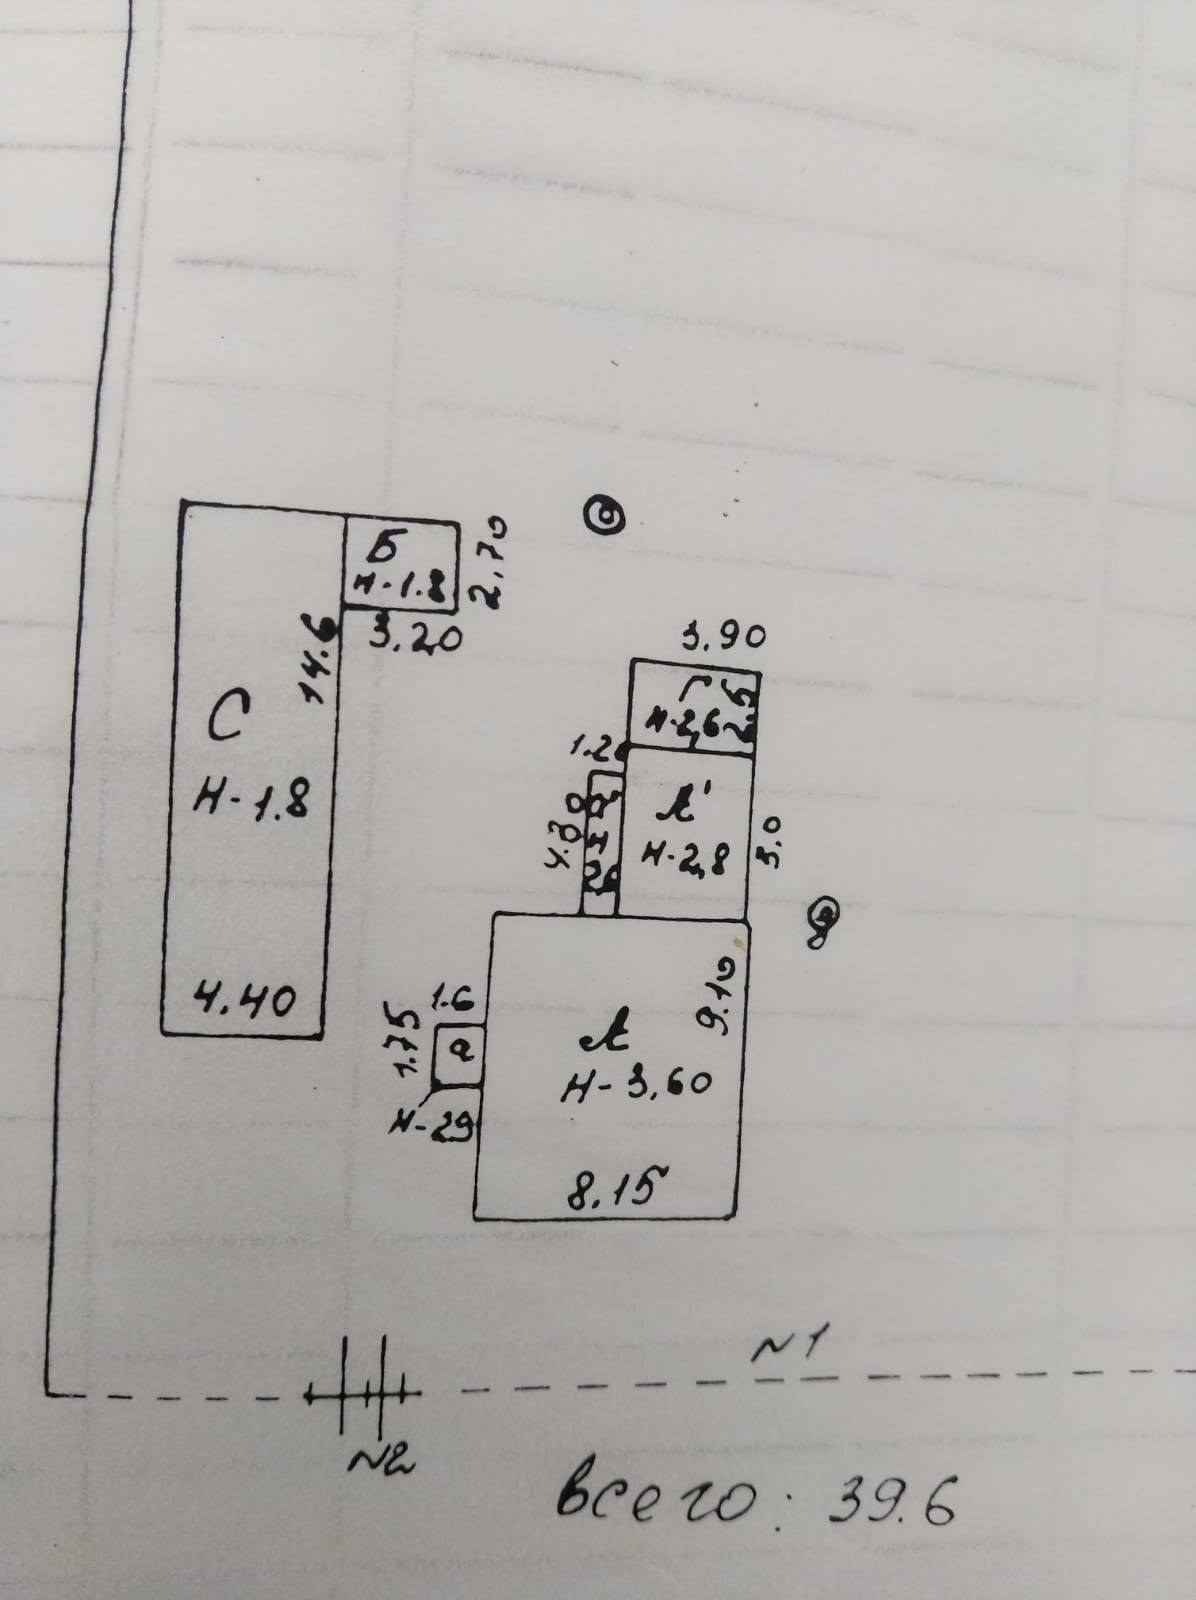 Б
Н-1.8
2.70
3.20
14.6
С
Н-1.8
4.40
3.90
Г
Н-2,6
2.5
1.20
4.30
А'
Н-2,8
5.0
1.6
1.75
а
Н-29
А
Н-3,60
9.10
8.15
N1
N2
всего: 39.6